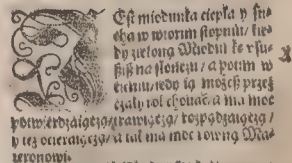 Jest miedunka ciepła y su-
cha w wtorim stopniu/ kie-
dy zieloną Miedunkę vsu-
szysz na słońcu/ a potim w
cieniu/ tedy ią możesz przez
cały rok chować/ a ma moc
potwierdzaiącą/ trawiącą/ rozpądzaiącą/
y też ocieraiącą/ a tak ma moc rowną Ma-
ieronowi.